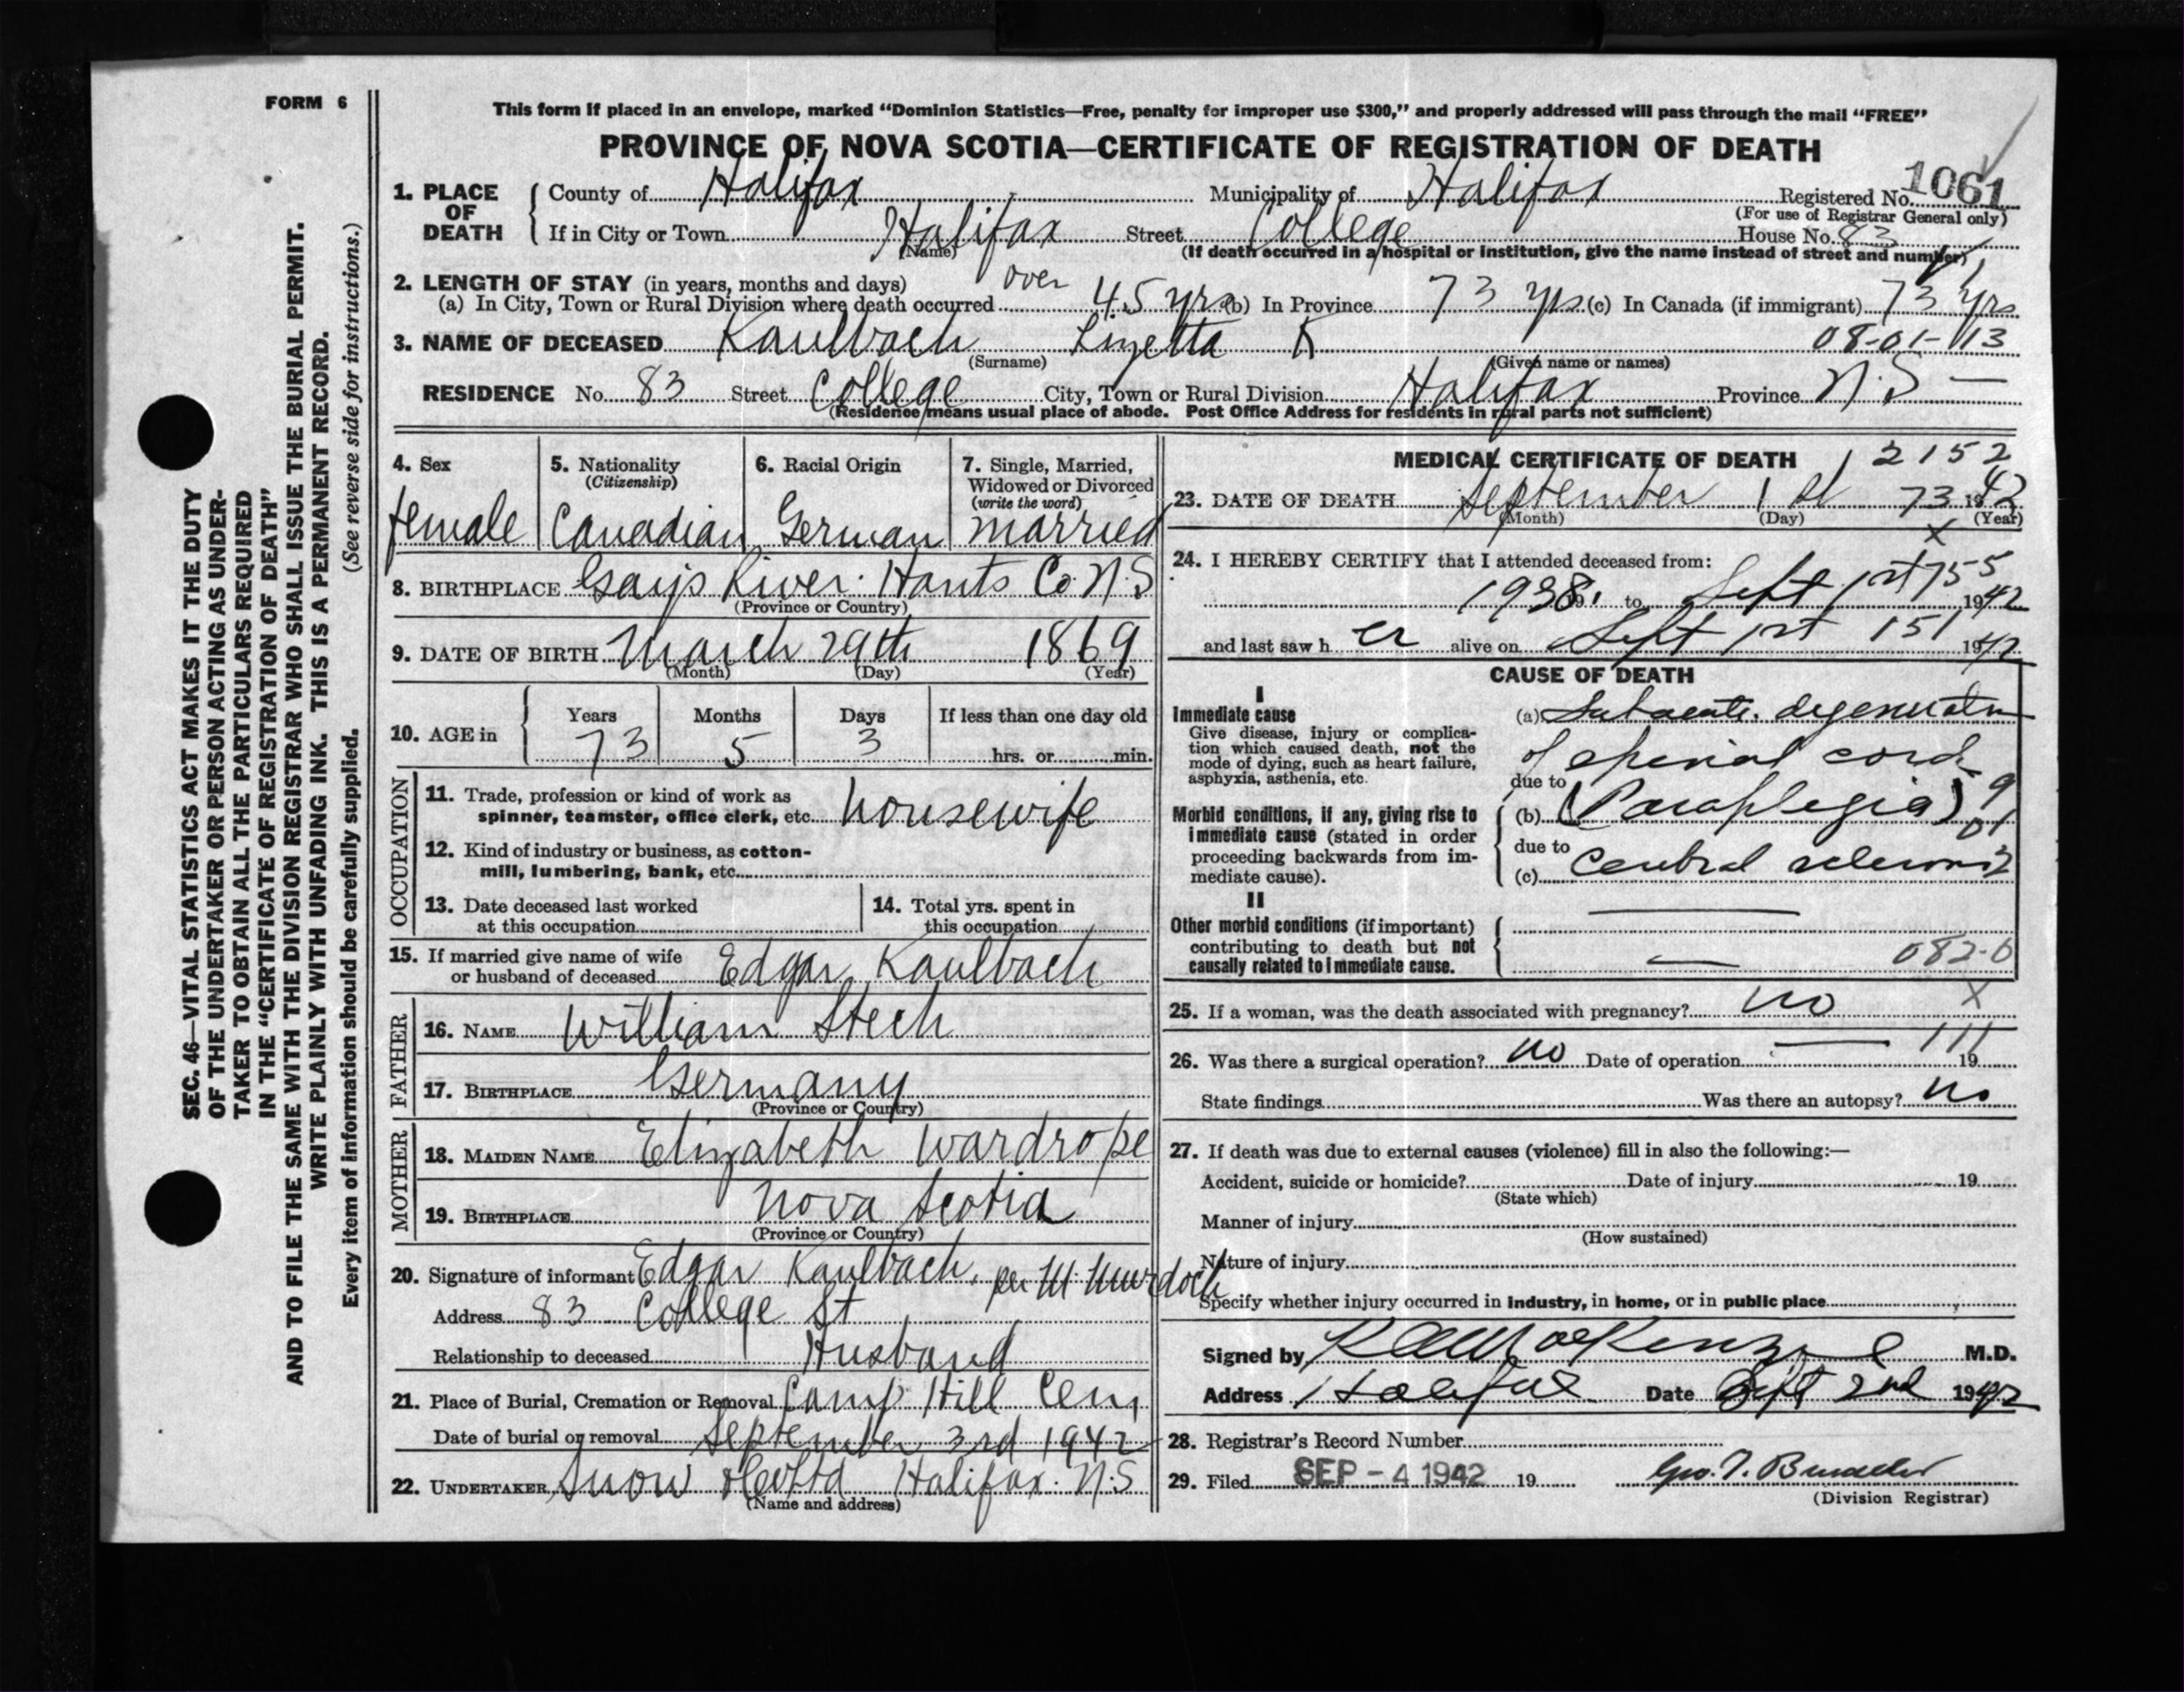 FORM 6
This form if placed in an envelope, marked “Dominion Statistics—Free, penalty for improper use $300,” and properly addressed will pass through the mail “FREE”
PROVINCE OF NOVA SCOTIA—CERTIFICATE OF REGISTRATION OF DEATH
1. PLACE OF DEATH County of Halifax Municipality of Halifax Registered No. 1061
(For use of Registrar General only)
If in City or Town Halifax Street College House No. 83
(Name) (If death occurred in a hospital or institution, give the name instead of street and number)
2. LENGTH OF STAY (in years, months and days)
(a) In City, Town or Rural Division where death occurred over 45 yrs (b) In Province 73 yrs (c) In Canada (if immigrant) 73 yrs
08-01-113
3. NAME OF DECEASED Kaulbach Lizetta K
(Surname) (Given name or names)
RESIDENCE No. 83 Street College City, Town or Rural Division Halifax Province N.S —
(Residence means usual place of abode. Post Office Address for residents in rural parts not sufficient)
4. Sex female
5. Nationality (Citizenship) Canadian
6. Racial Origin German
7. Single, Married, Widowed or Divorced (write the word) married
8. BIRTHPLACE Gays River. Hants Co. N.S
(Province or Country)
9. DATE OF BIRTH March 29th 1869
(Month) (Day) (Year)
10. AGE in Years 73 Months 5 Days 3 If less than one day old hrs. or min.
OCCUPATION
11. Trade, profession or kind of work as spinner, teamster, office clerk, etc. housewife
12. Kind of industry or business, as cotton-mill, lumbering, bank, etc.
13. Date deceased last worked at this occupation
14. Total yrs. spent in this occupation
15. If married give name of wife or husband of deceased Edgar Kaulbach
FATHER
16. NAME William Stech
17. BIRTHPLACE Germany
(Province or Country)
MOTHER
18. MAIDEN NAME Elizabeth Wardrope
19. BIRTHPLACE Nova Scotia
(Province or Country)
20. Signature of informant Edgar Kaulbach, per M. Murdoch
Address 83 College St
Relationship to deceased Husband
21. Place of Burial, Cremation or Removal Camp Hill Cem
Date of burial or removal September 3rd 1942
22. UNDERTAKER Snow Halifax. N.S
(Name and address)
MEDICAL CERTIFICATE OF DEATH 12152
23. DATE OF DEATH September 1st 73 1942
(Month) (Day) (Year)
X
24. I HEREBY CERTIFY that I attended deceased from:
1938 19 to Sept 1st 755 1942
and last saw h er alive on Sept 1st 151 1942
CAUSE OF DEATH
I
Immediate cause
Give disease, injury or complication which caused death, not the mode of dying, such as heart failure, asphyxia, asthenia, etc.
(a) Subacute degeneratn
of spinal cord
due to
Morbid conditions, if any, giving rise to immediate cause (stated in order proceeding backwards from immediate cause).
(b) (Paraplegia)
due to
(c) Cerebral
II
Other morbid conditions (if important) contributing to death but not causally related to immediate cause.
— 082-0
25. If a woman, was the death associated with pregnancy? no X
26. Was there a surgical operation? no Date of operation — 111 19
State findings Was there an autopsy? no
27. If death was due to external causes (violence) fill in also the following:—
Accident, suicide or homicide? Date of injury 19
(State which)
Manner of injury
(How sustained)
Nature of injury
Specify whether injury occurred in industry, in home, or in public place
Signed by K A MacKenzie M.D.
Address Halifax Date Sept 2nd 1942
28. Registrar's Record Number
29. Filed SEP - 4 1942 19
(Division Registrar)
SEC. 46—VITAL STATISTICS ACT MAKES IT THE DUTY
OF THE UNDERTAKER OR PERSON ACTING AS UNDER-
TAKER TO OBTAIN ALL THE PARTICULARS REQUIRED
IN THE “CERTIFICATE OF REGISTRATION OF DEATH”
AND TO FILE THE SAME WITH THE DIVISION REGISTRAR WHO SHALL ISSUE THE BURIAL PERMIT.
WRITE PLAINLY WITH UNFADING INK. THIS IS A PERMANENT RECORD.
Every item of information should be carefully supplied. (See reverse side for instructions.)